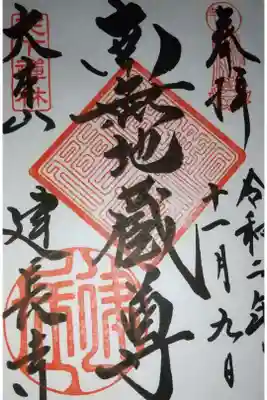 奉拝
令和二年
十一月九日
南無地蔵尊
巨福山
建長寺